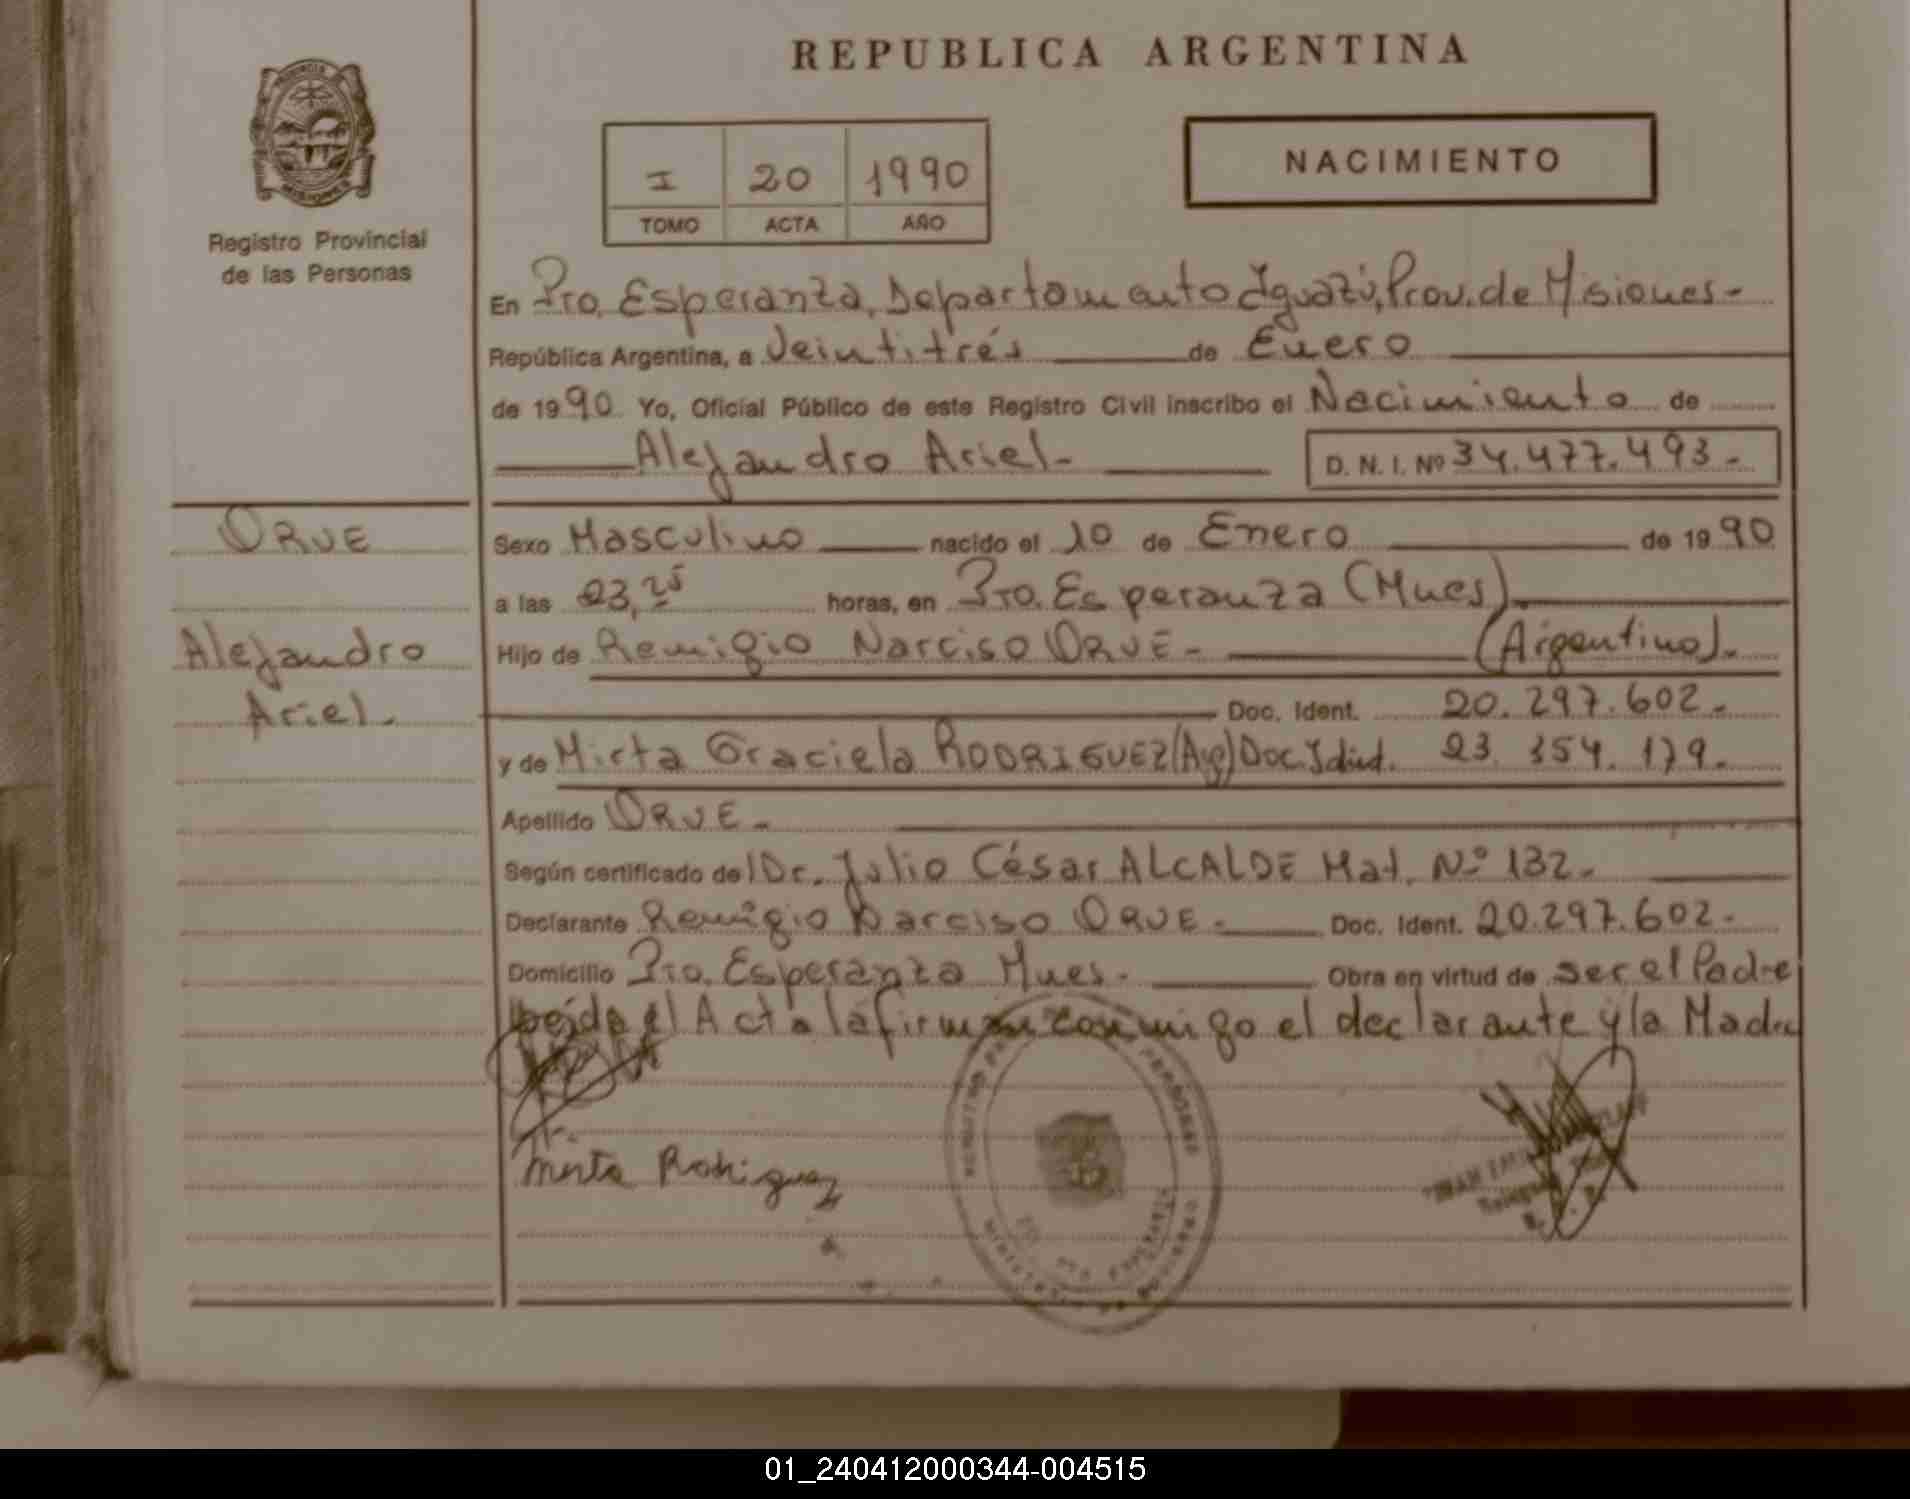 REPUBLICA ARGENTINA
I 20 1990
TOMO ACTA AÑO
NACIMIENTO
MISIONES
Registro Provincial
de las Personas
En Pto. Esperanza, Departamento Iguazú, Prov. de Misiones-
República Argentina, a Veintitrés de Enero
de 1990 Yo, Oficial Público de este Registro Civil inscribo el Nacimiento de
Alejandro Ariel-
D. N. I. Nº 34.477.493-
ORUE
Alejandro
Ariel.
Sexo Masculino nacido el 10 de Enero de 1990
a las 23,25 horas, en Pto. Esperanza (Mnes).
Hijo de Remigio Narciso ORUE- (Argentino).-
Doc. Ident. 20.297.602-
y de Mirta Graciela RODRIGUEZ (Arg) Doc. Idtid. 23.354.179-
Apellido ORUE-
Según certificado del Dr. Julio César ALCALDE Mat. Nº 132-
Declarante Remigio Narciso ORUE- Doc. Ident. 20.297.602-
Domicilio Pto. Esperanza Mnes- Obra en virtud de ser el Padre
Leída el Acta la firman conmigo el declarante y la Madre
Mirta Rodriguez
01_240412000344-004515